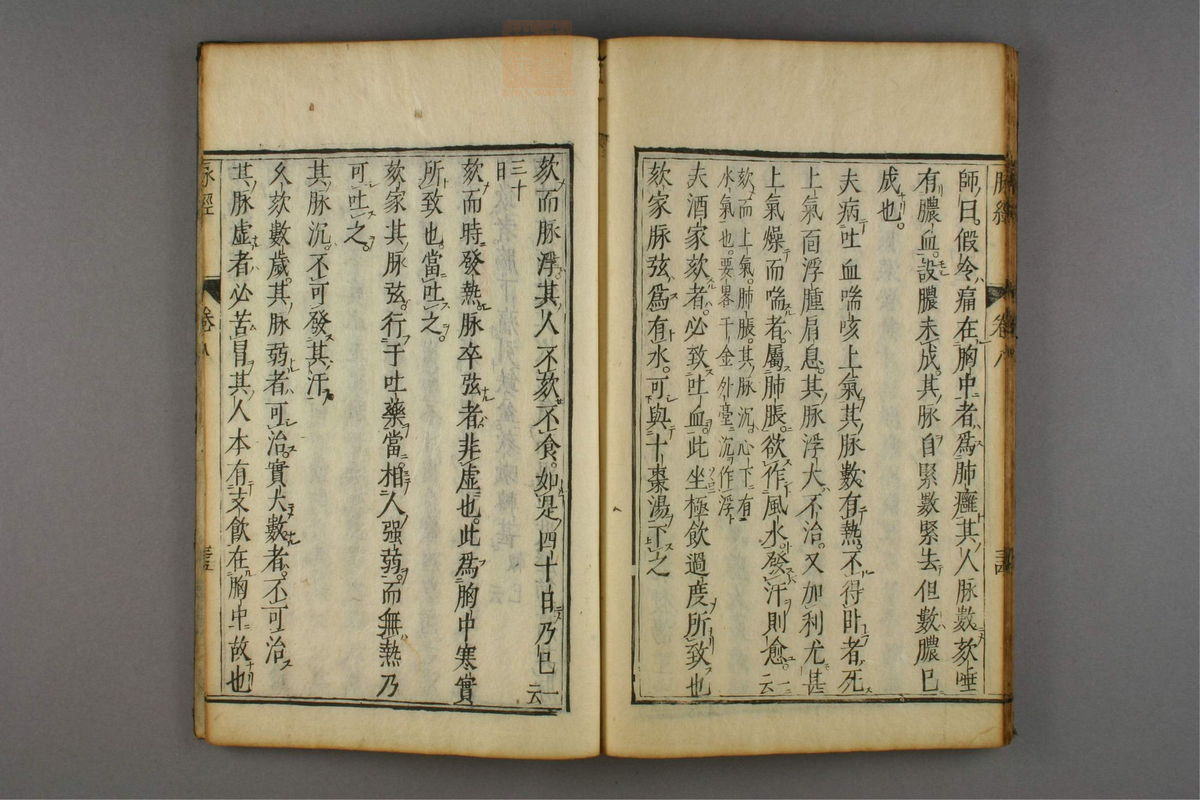 脉經 卷八
師曰假令痛在胸中者為肺癰其人脉數欬唾
有膿血設膿未成其脉自緊數緊去但數膿已
成也
夫病吐血喘咳上氣其脉數有熱不得卧者死
上氣面浮腫肩息其脉浮大不治又加利尤甚
上氣燥而喘者屬肺脹欲作風水發汗則愈一云
欬而上氣肺脹其脉沉心下有
水氣也要畧千金外臺沉作浮
夫酒家欬者必致吐血此坐極飲過度所致也
欬家脉弦為有水可與十棗湯下之
欬而脉浮其人不欬不食如是四十日乃已一云
三十
日
欬而時發熱脉卒弦者非虛也此為胸中寒實
所致也當吐之
欬家其脉弦行于吐藥當相人强弱而無熱乃
可吐之
其脉沉不可發其汗
久欬數歲其脉弱者可治實大數者不可治
其脉虛者必苦冒其人本有支飲在胸中故也
脉經 卷八